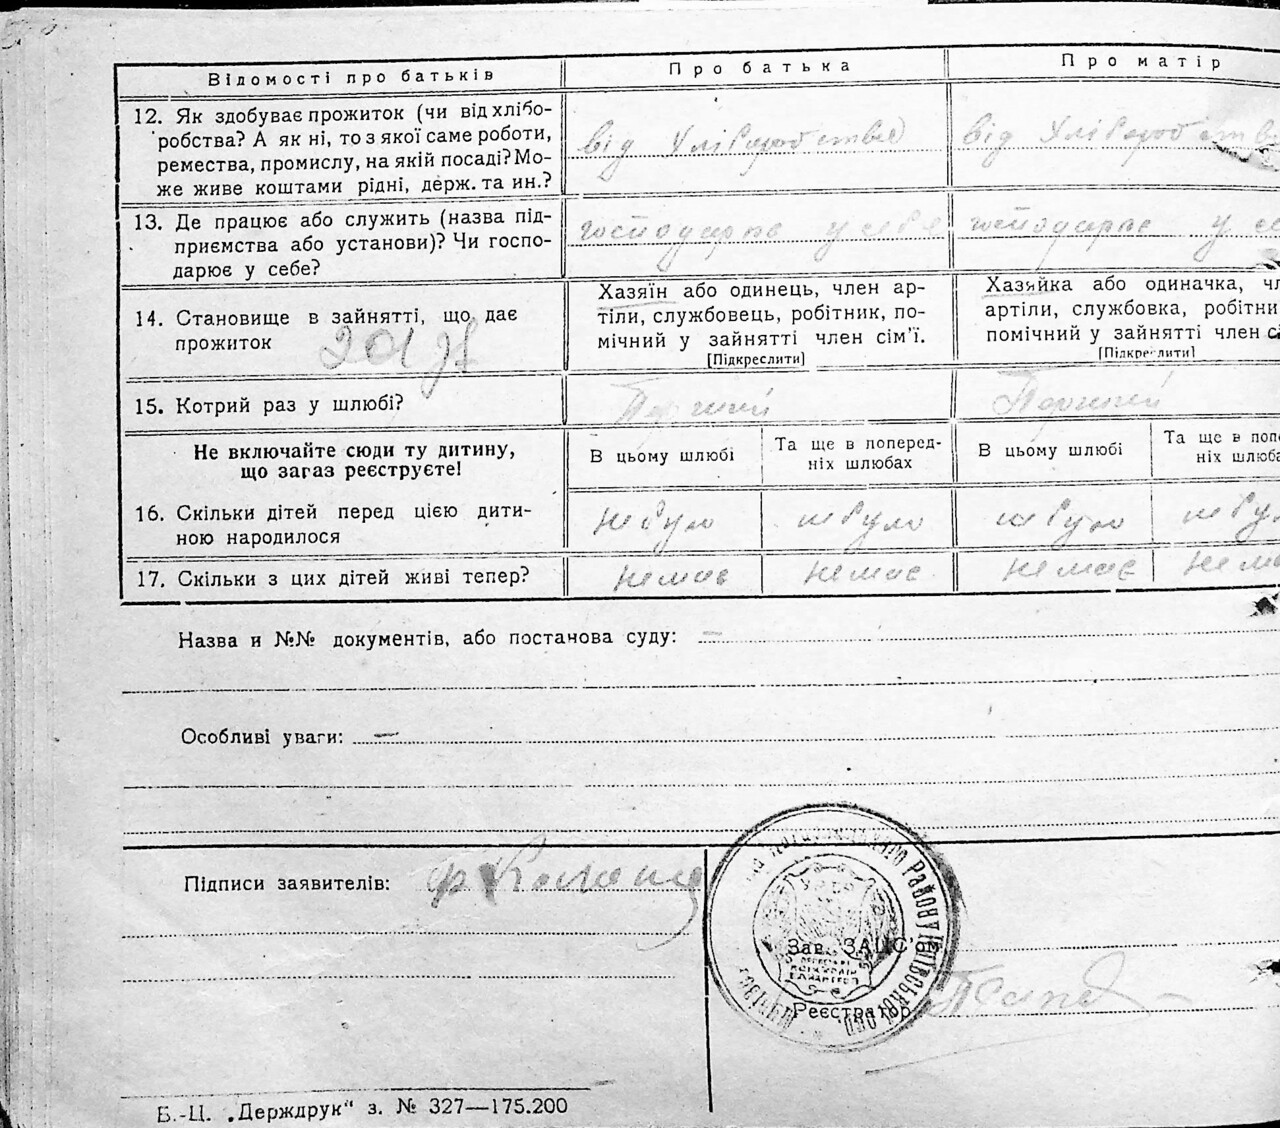 Відомості про батьків
Про батька
Про матір
12. Як здобуває прожиток (чи від хлібо-
робства? А як ні, то з якої саме роботи,
ремества, промислу, на якій посаді? Мо-
же живе коштами рідні, держ. та ин.?
від хліборобства
від хліборобства
13. Де працює або служить (назва під-
приємства або установи)? Чи госпо-
дарює у себе?
господарює у себе
господарює у се
14. Становище в зайнятті, що дає
прожиток
Хазяїн або одинець, член ар-
тіли, службовець, робітник, по-
мічний у зайнятті член сім'ї.
[Підкреслити]
Хазяйка або одиначка, чл
артіли, службовка, робітни
помічний у зайнятті член с
[Підкреслити]
15. Котрий раз у шлюбі?
Перший
Перший
Не включайте сюди ту дитину,
що загаз реєструєте!
В цьому шлюбі
Та ще в поперед-
ніх шлюбах
В цьому шлюбі
Та ще в попе
ніх шлюба
16. Скільки дітей перед цією дити-
ною народилося
не було
не було
не було
не було
17. Скільки з цих дітей живі тепер?
немає
немає
немає
нема
Назва и №№ документів, або постанова суду: —
Особливі уваги: —
Підписи заявителів:
Зав. ЗАЦС'ом
Реєстратор
Б.-Ц. „Держдрук" з. № 327—175.200